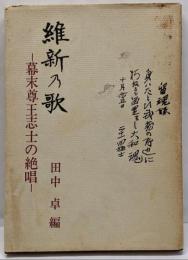 留魂録
身ハたとひ武蔵の野辺に
朽ぬとも留置まし大和魂
十月念五日
二十一回猛士
維新乃歌
―幕末尊王志士の絶唱―
田中卓編